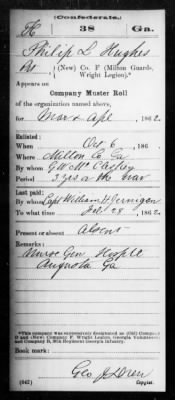 (Confederate.)
H 38 Ga.
Philip L Hughes
Pvt (New) Co. F (Milton Guards, Wright Legion).*
Appears on
Company Muster Roll
of the organization named above,
for Mar & Apl, 1862.
Enlisted:
When Oct 6, 186
Where Milton Co Ga
By whom G W McCaffrey
Period 3 yrs or the war
Last paid:
By whom Capt William H Jernigan
To what time Feb 28, 1862.
Present or absent Absent
Remarks:
Nurse Gen Hospl
Augusta Ga
*This company was successively designated as (Old) Company
and (New) Company F, Wright Legion, Georgia Volunteers
and Company D, 38th Regiment Georgia Infantry.
Book mark:
(642)
Copyist.